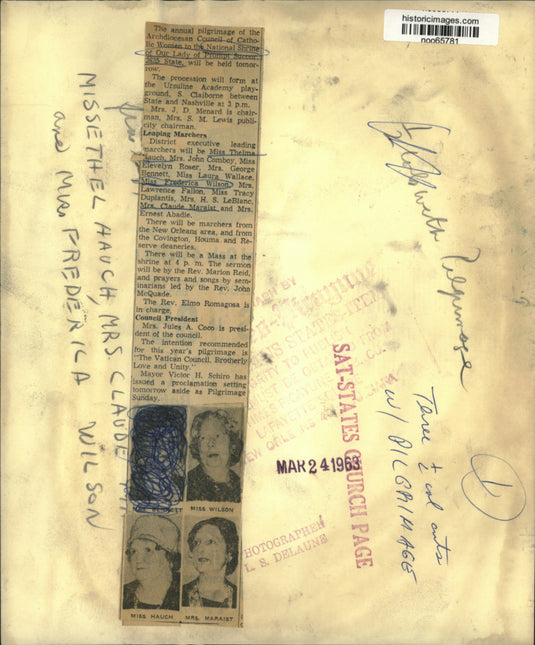 historicimages.com
noo65781
The annual pilgrimage of the
Archdiocesan Council of Catho-
lic Women to the National Shrine
of Our Lady of Prompt Succor,
State, will be held tomor-
row.
The procession will form at
the Ursuline Academy play-
ground, S. Claiborne between
State and Nashville at 3 p.m.
Mrs. J. D. Menard is chair-
man, Mrs. S. M. Lewis publi-
city chairman.
Leaping Marchers
District executive leading
marchers will be Miss Thelma
Hauch, Mrs. John Comboy, Miss
Elevelyn Roser, Mrs. George
Bennett, Miss Laura Wallace,
Miss Frederica Wilson, Mrs.
Lawrence Fallon, Miss Tracy
Duplantis, Mrs. H. S. LeBlanc,
Mrs. Claude Maraist and Mrs.
Ernest Abadie.
There will be marchers from
the New Orleans area, and from
the Covington, Houma and Re-
serve deaneries.
There will be a Mass at the
shrine at 4 p. m. The sermon
will be by the Rev. Marion Reid,
and prayers and songs by sem-
inarians led by the Rev. John
McQuade.
The Rev. Elmo Romagosa is
in charge.
Council President
Mrs. Jules A. Coco is presi-
dent of the council.
The intention recommended
for this year's pilgrimage is
"The Vatican Council, Brotherly
Love and Unity."
Mayor Victor H. Schiro has
issued a proclamation setting
tomorrow aside as Pilgrimage
Sunday.
MISS WILSON
MISS HAUCH MRS. MARAIST
MISS ETHEL HAUCH, MRS CLAUDE
and Miss FREDERICA WILSON
with Pilgrimage
Three 1/2 col cuts
w/ PILGRIMAGE
1
SAT-STATES CHURCH PAGE
MAR 24 1963
PHOTOGRAPHER
L. S. DELAUNE